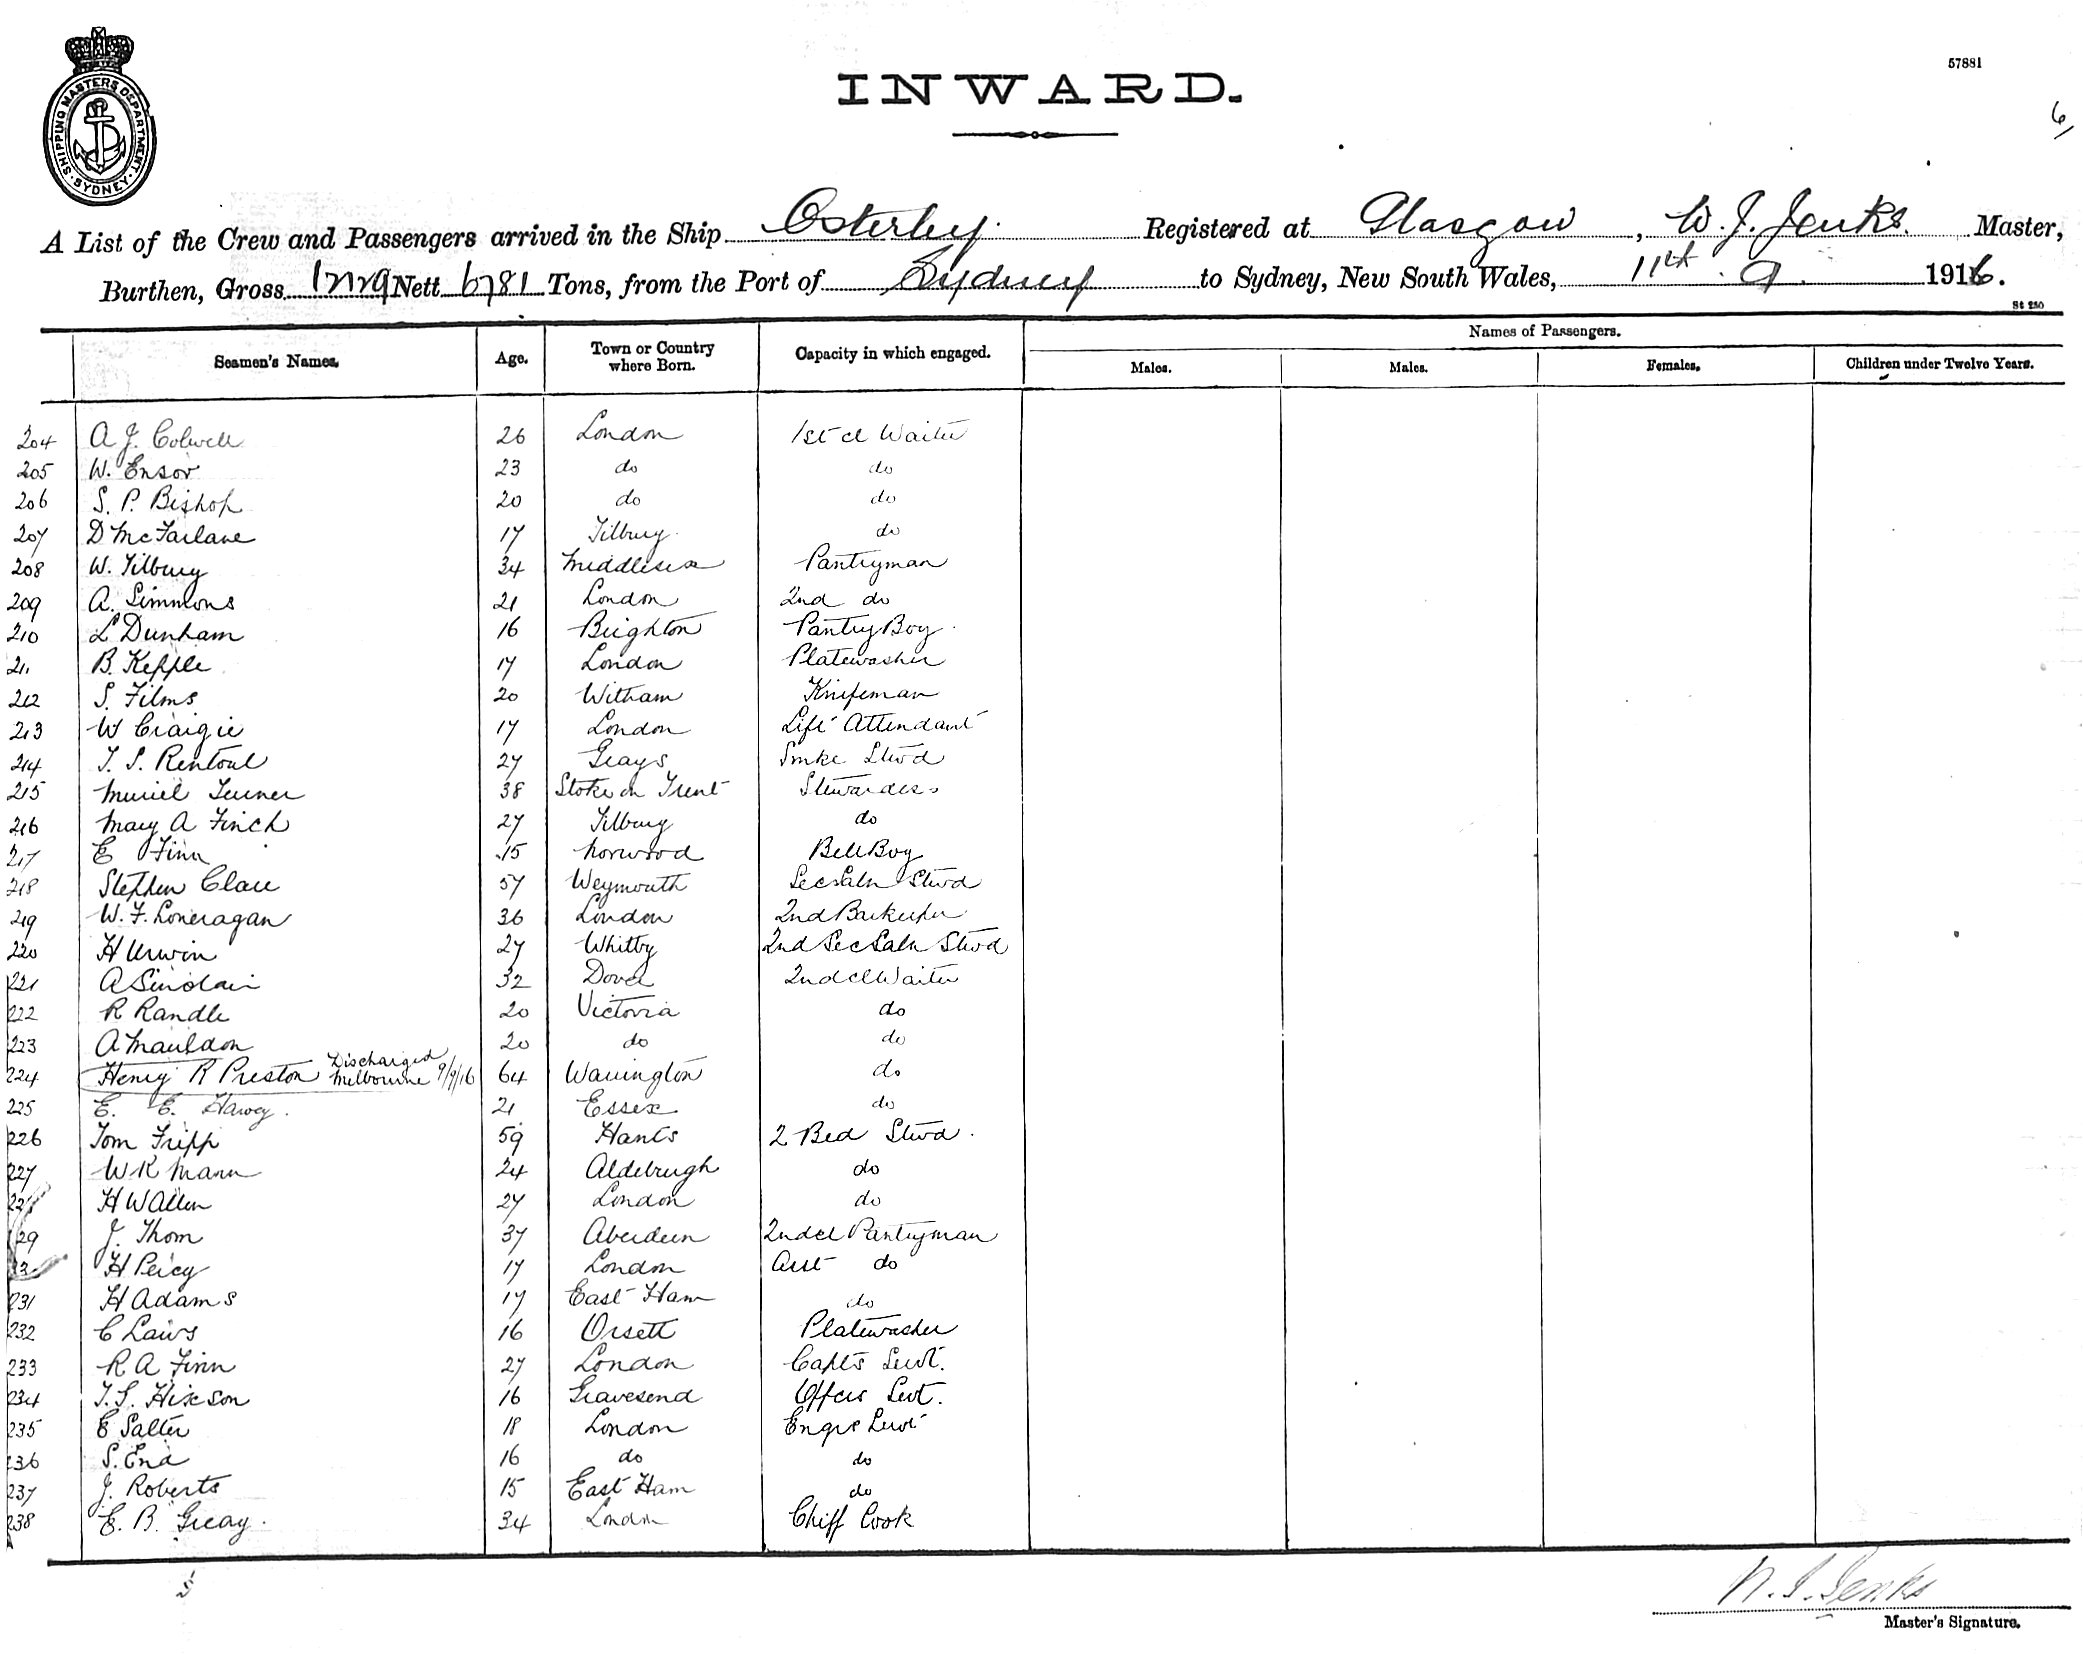 57881
6
SHIPPING MASTERS DEPARTMENT. SYDNEY.
INWARD.
A List of the Crew and Passengers arrived in the Ship Osterley. Registered at Glasgow, W. J. Jenks. Master,
Burthen, Gross 12129 Nett 6781 Tons, from the Port of Sydney to Sydney, New South Wales, 11th. 9. 1916.
St 250
Names of Passengers.
Seamen's Names. Age. Town or Country where Born. Capacity in which engaged. Males. Males. Females. Children under Twelve Years.
204 A J. Colwell 26 London 1st cl Waiter
205 W. Ensor 23 do do
206 S. P. Bishop 20 do do
207 D McFarlane 17 Tilbury do
208 W. Tilbury 34 Middlesex Pantryman
209 A. Simmons 21 London 2nd do
210 L Dunham 16 Brighton Pantry Boy
211 B. Kepple 17 London Platewasher
212 S. Films 20 Witham Knifeman
213 W Craigie 17 London Lift Attendant
214 T. S. Rentoul 27 Grays Smke Stwd
215 Muriel Turner 38 Stoke on Trent Stewardess
216 Mary A Finch 27 Tilbury do
217 E Finn 15 Norwood Bell Boy
218 Stephen Clare 57 Weymouth Sec Saln Stwd
219 W. F. Loneragan 36 London 2nd Barkeeper
220 H Urwin 27 Whitby 2nd Sec Saln Stwd
221 A Sinclair 32 Dover 2nd cl Waiter
222 R Randle 20 Victoria do
223 A Mauldon 20 do do
224 Henry R Preston Discharged Melbourne 9/9/16 64 Warrington do
225 E. E. Harvey. 21 Essex do
226 Tom Fripp 59 Hants 2 Bed Stwd.
227 W R Mann 24 Aldeburgh do
228 H W Allen 27 London do
229 J. Thom 37 Aberdeen 2nd cl Pantryman
230 H Percy 17 London Asst do
231 H Adams 17 East Ham do
232 C Laws 16 Orsett Platewasher
233 R A Finn 27 London Capts Servt.
234 T. S. Hixson 16 Gravesend Offcrs Servt.
235 E Salter 18 London Engrs Servt
236 S. End 16 do do
237 J. Roberts 15 East Ham do
238 E. B. Greay. 34 London Chiff Cook
W. J. Jenks
Master's Signature.